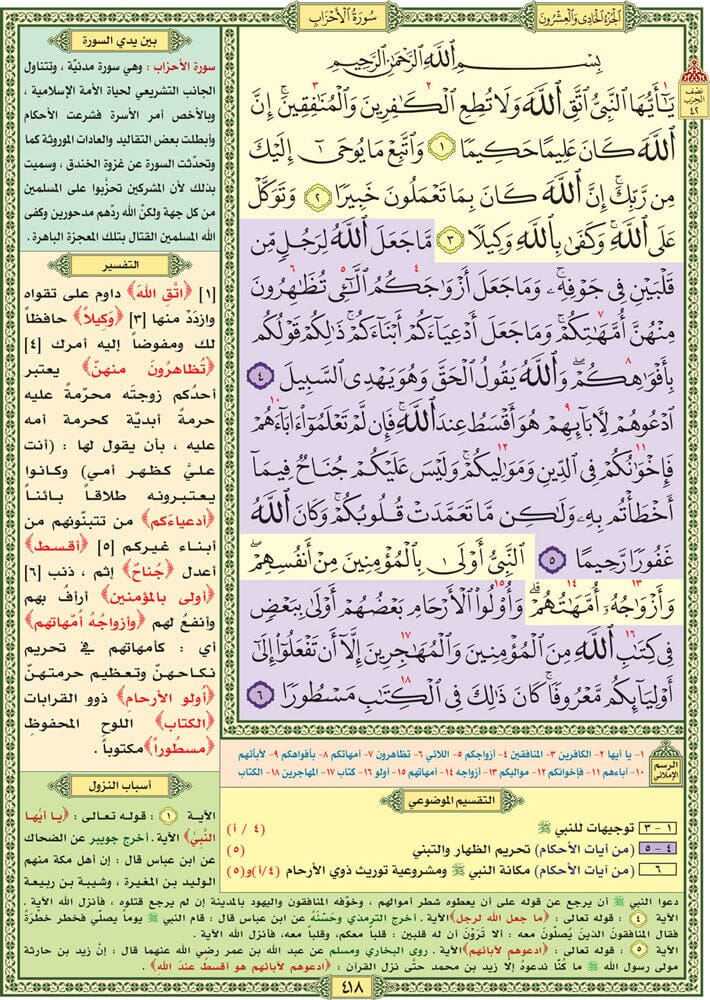 الجُزءُ الحَادِى وَالعِشْرُون
سُورَةُ الأَحْزَابِ
نصف
الحزب
٤٢
بِسْمِ اللَّهِ الرَّحْمَٰنِ الرَّحِيمِ
يَٰٓأَيُّهَا النَّبِيُّ اتَّقِ اللَّهَ وَلَا تُطِعِ الْكَٰفِرِينَ وَالْمُنَٰفِقِينَۗ إِنَّ
اللَّهَ كَانَ عَلِيمًا حَكِيمًا ١ وَاتَّبِعْ مَا يُوحَىٰٓ إِلَيْكَ
مِن رَّبِّكَۚ إِنَّ اللَّهَ كَانَ بِمَا تَعْمَلُونَ خَبِيرًا ٢ وَتَوَكَّلْ
عَلَى اللَّهِۚ وَكَفَىٰ بِاللَّهِ وَكِيلًا ٣ مَّا جَعَلَ اللَّهُ لِرَجُلٍ مِّن
قَلْبَيْنِ فِي جَوْفِهِۦۚ وَمَا جَعَلَ أَزْوَٰجَكُمُ الَّٰٓـِٔي تُظَٰهِرُونَ
مِنْهُنَّ أُمَّهَٰتِكُمْۚ وَمَا جَعَلَ أَدْعِيَآءَكُمْ أَبْنَآءَكُمْۚ ذَٰلِكُمْ قَوْلُكُم
بِأَفْوَٰهِكُمْۖ وَاللَّهُ يَقُولُ الْحَقَّ وَهُوَ يَهْدِي السَّبِيلَ ٤
ادْعُوهُمْ لِأٓبَآئِهِمْ هُوَ أَقْسَطُ عِندَ اللَّهِۚ فَإِن لَّمْ تَعْلَمُوٓا۟ ءَابَآءَهُمْ
فَإِخْوَٰنُكُمْ فِي الدِّينِ وَمَوَٰلِيكُمْۚ وَلَيْسَ عَلَيْكُمْ جُنَاحٌ فِيمَآ
أَخْطَأْتُم بِهِۦ وَلَٰكِن مَّا تَعَمَّدَتْ قُلُوبُكُمْۚ وَكَانَ اللَّهُ
غَفُورًا رَّحِيمًا ٥ النَّبِيُّ أَوْلَىٰ بِالْمُؤْمِنِينَ مِنْ أَنفُسِهِمْۖ
وَأَزْوَٰجُهُۥٓ أُمَّهَٰتُهُمْۗ وَأُو۟لُوا۟ الْأَرْحَامِ بَعْضُهُمْ أَوْلَىٰ بِبَعْضٍ
فِي كِتَٰبِ اللَّهِ مِنَ الْمُؤْمِنِينَ وَالْمُهَٰجِرِينَ إِلَّآ أَن تَفْعَلُوٓا۟ إِلَىٰٓ
أَوْلِيَآئِكُم مَّعْرُوفًاۚ كَانَ ذَٰلِكَ فِي الْكِتَٰبِ مَسْطُورًا ٦
بين يدي السورة
سورة الأحزاب : وهي سورة مدنيّة ، وتتناول
الجانب التشريعي لحياة الأمة الإسلامية ،
وبالأخص أمر الأسرة فشرعت الأحكام
وأبطلت بعض التقاليد والعادات الموروثة كما
وتحدّثت السورة عن غزوة الخندق ، وسميت
بذلك لأن المشركين تحزّبوا على المسلمين
من كل جهة ولكنّ الله ردّهم مدحورين وكفى
الله المسلمين القتال بتلك المعجزة الباهرة .
التفسير
[١] ﴿اتَّقِ اللهَ﴾ داوم على تقواه
وازدَدْ منها [٣] ﴿وَكِيلاً﴾ حافظاً
لك ومفوضاً إليه أمرك [٤]
﴿تُظاهِرُونَ منهنّ﴾ يعتبر
أحدُكم زوجتَه محرّمةً عليه
حرمةً أبديّة كحرمة أمه
عليه ، بأن يقول لها : (أنت
عليَّ كظهر أمي) وكانوا
يعتبرونه طلاقاً بائناً
﴿أدعياءَكم﴾ من تتبنّونهم من
أبناء غيركم [٥] ﴿أقسط﴾
أعدل ﴿جُناحٌ﴾ إثم ، ذنب [٦]
﴿أولى بالمؤمنين﴾ أرأفُ بهم
وأنفعُ لهم ﴿وأزواجُهُ أمّهاتهم﴾
أي : كأمهاتهم في تحريم
نكاحهنّ وتعظيم حرمتهنّ
﴿أولو الأرحام﴾ ذوو القرابات
﴿الكتاب﴾ اللوح المحفوظِ
﴿مسطُوراً﴾ مكتوباً .
الرسم
الإملائي
١- يا أيها ٢- الكافرين ٣- المنافقين ٤- أزواجكم ٥- اللائي ٦- تظاهرون ٧- أمهاتكم ٨- بأفواهكم ٩- لآبائهم
١٠- آباءهم ١١- فإخوانكم ١٢- مواليكم ١٣- أزواجه ١٤- أمهاتهم ١٥- أولو ١٦- كتاب ١٧- المهاجرين ١٨- الكتاب
التقسيم الموضوعي
١ - ٣ توجيهات للنبي ﷺ (٤ / أ)
٤ - ٥ (من آيات الأحكام) تحريم الظهار والتبني (٥)
٦ (من آيات الأحكام) مكانة النبي ﷺ ومشروعية توريث ذوي الأرحام (٤/أ)و(٥)
أسباب النزول
الآية ١ : قوله تعالى : ﴿يا أيّها
النّبيُّ﴾ الآية . أخرج جويبر عن الضحاك
عن ابن عباس قال : إن أهل مكة منهم
الوليد بن المغيرة ، وشيبة بن ربيعة
دعوا النبي ﷺ أن يرجع عن قوله على أن يعطوه شطر أموالهم ، وخوَّفه المنافقون واليهود بالمدينة إن لم يرجع قتلوه ، فأنزل الله الآية .
الآية ٤ : قوله تعالى : ﴿ما جعل الله لرجل﴾ الآية . أخرج الترمذي وحَسَّنَهُ عن ابن عباس قال : قام النبي ﷺ يوماً يصلّي فخطر خطرَةً
فقال المنافقون الذين يُصلُّونَ معه : ألا تَرَوْنَ أن له قلبين : قلباً معكم، وقلباً معه، فأنزل الله الآية .
الآية ٥ : قوله تعالى : ﴿ادعوهم لآبائهم﴾ الآية . روى البخاري ومسلم عن عبد الله بن عمر رضي الله عنهما قال : إنَّ زيد بن حارثة
مولى رسول الله ﷺ ما كُنّا ندعوهُ إلا زيد بن محمد حتَّى نزل القرآن : ﴿ادعوهم لآبائهم هو أقسط عندَ الله﴾ .
٤١٨